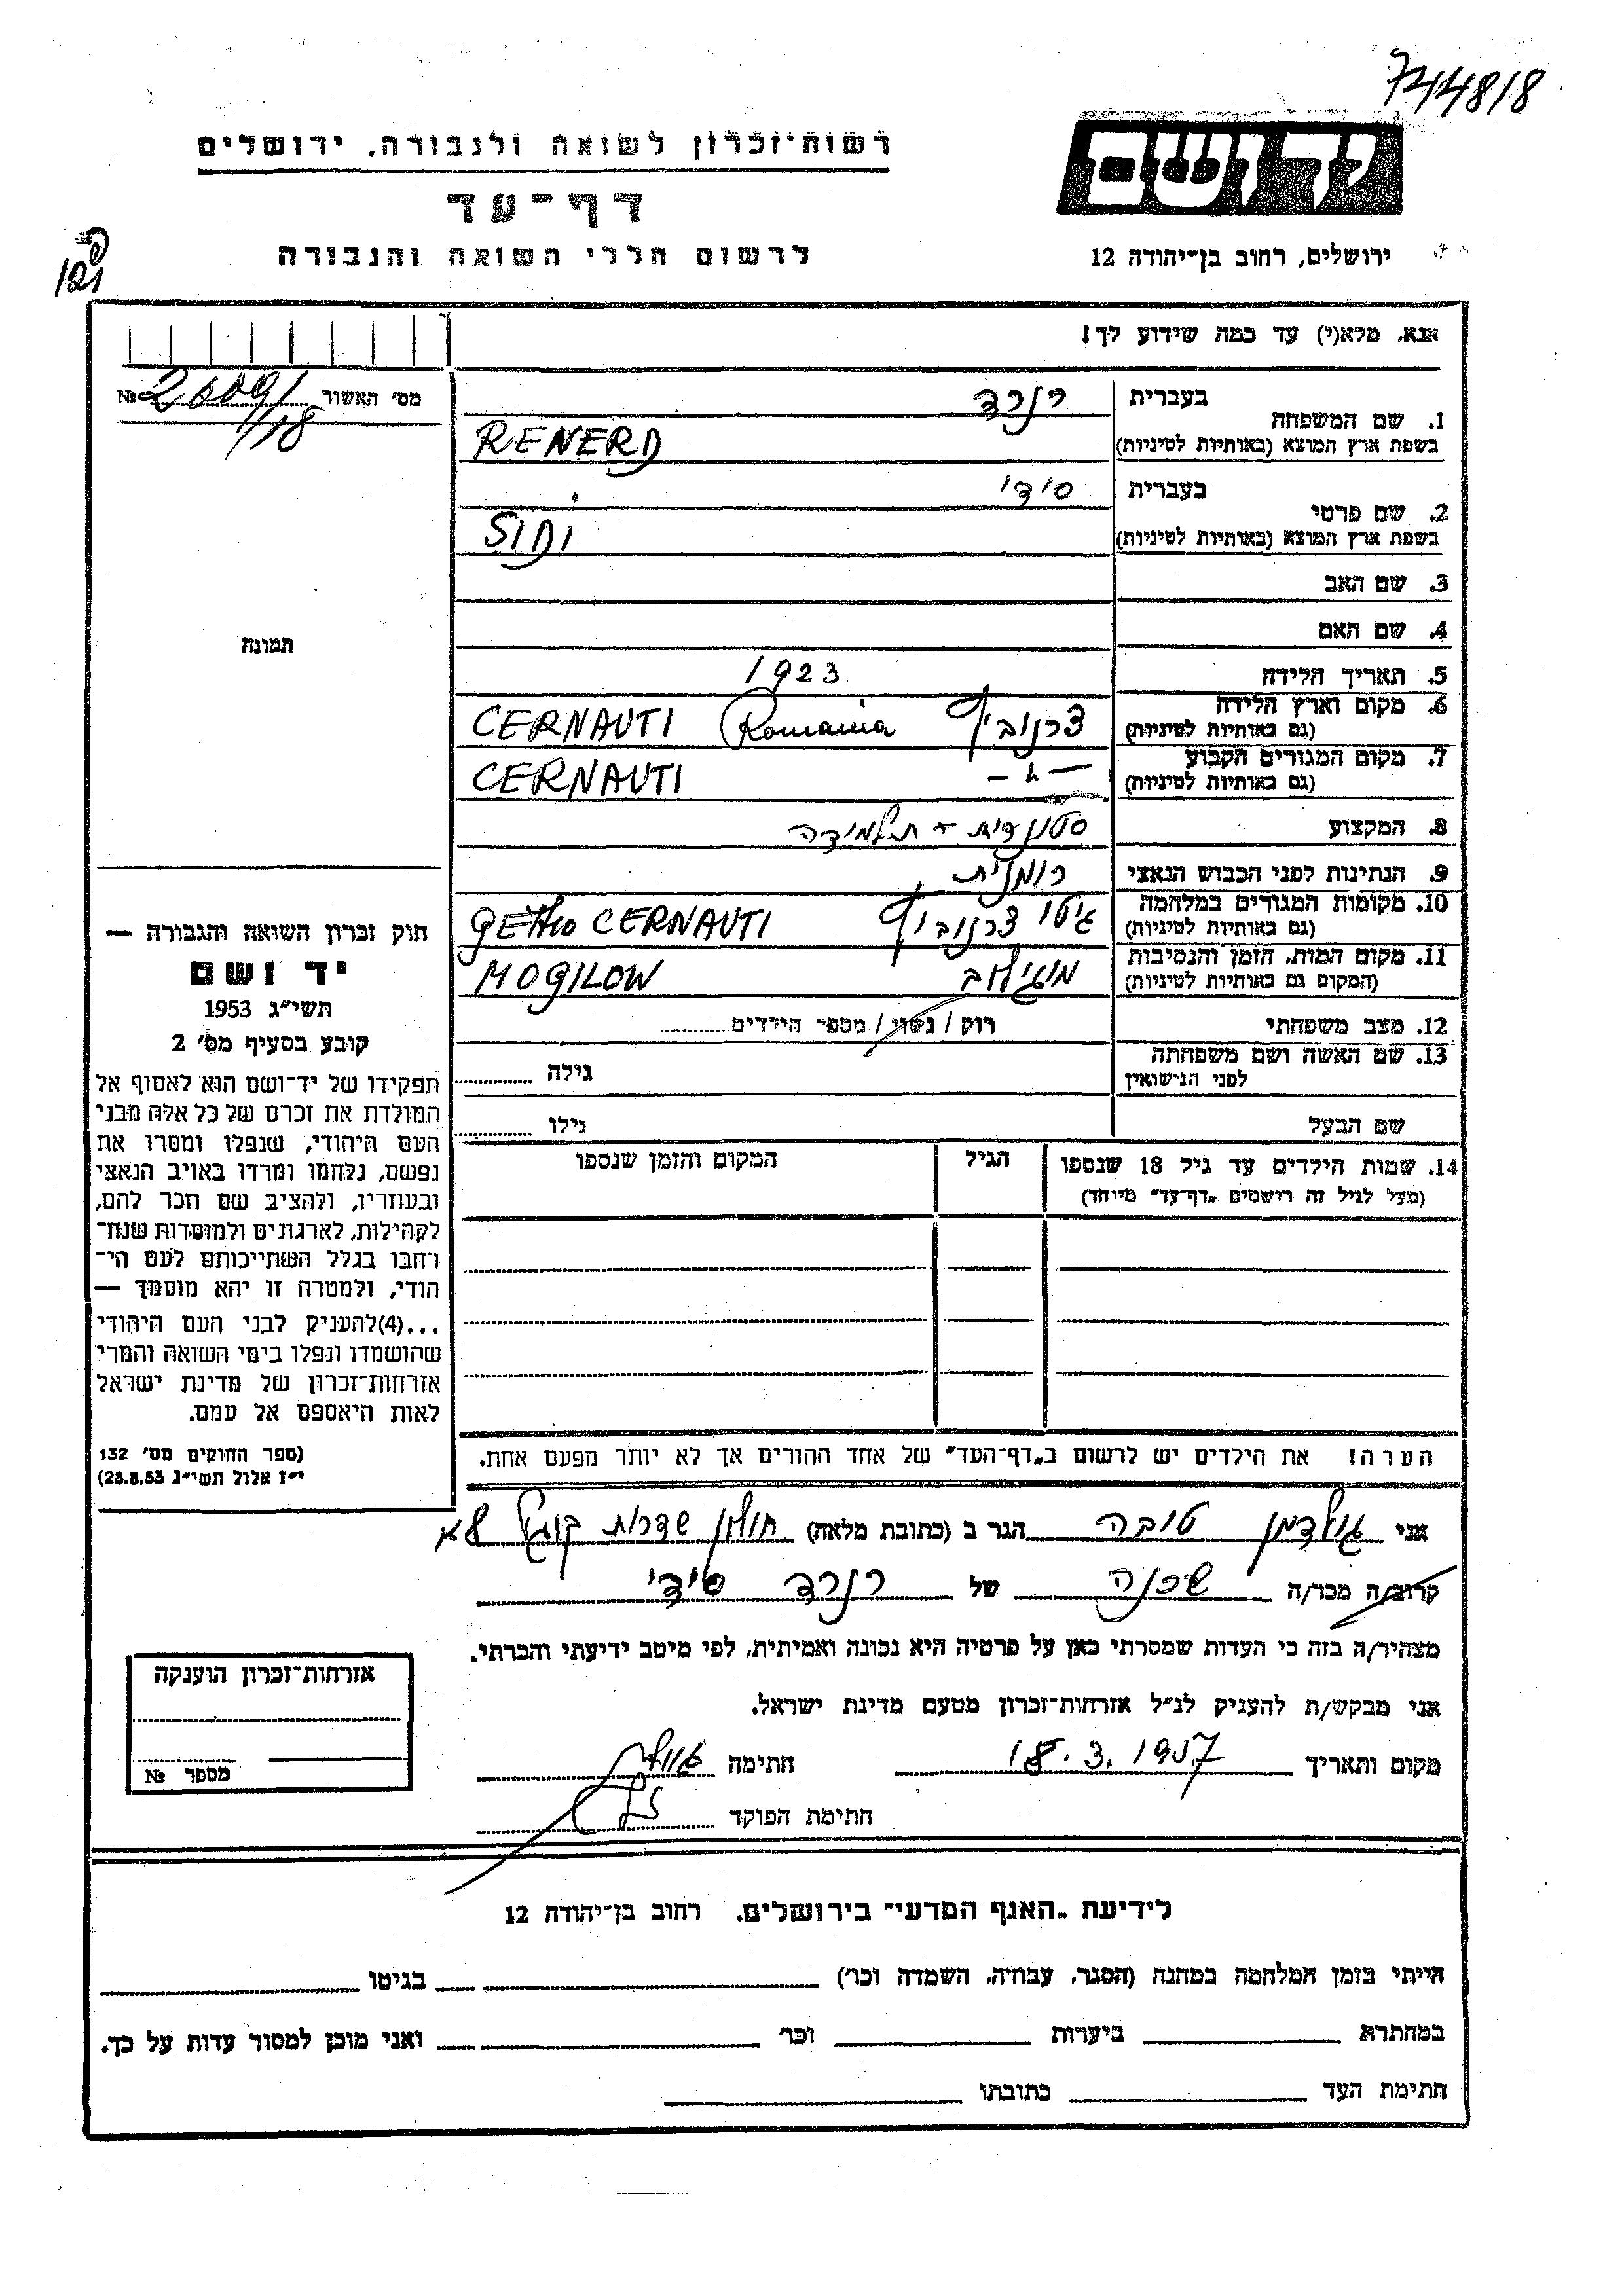 744818
יד ושם
רשות־זכרון לשואה ולגבורה, ירושלים
דף־עד
לרשום חללי השואה והגבורה
ירושלים, רחוב בן־יהודה 12
121
אנא, מלא(י) עד כמה שידוע לך!
מס׳ האשור 2009/18 №
1. שם המשפחה בעברית רנרד
בשפת ארץ המוצא (באותיות לטיניות) RENERD
2. שם פרטי בעברית סידי
בשפת ארץ המוצא (באותיות לטיניות) SIDI
3. שם האב
4. שם האם
תמונה
5. תאריך הלידה 1923
6. מקום וארץ הלידה (גם באותיות לטיניות) צרנוביץ Romania CERNAUTI
7. מקום המגורים הקבוע (גם באותיות לטיניות) –〃– CERNAUTI
8. המקצוע סטונדית + תלמידה
9. הנתינות לפני הכבוש הנאצי רומנית
10. מקומות המגורים במלחמה (גם באותיות לטיניות) גיטו צרנוביץ GETTO CERNAUTI
11. מקום המות, הזמן והנסיבות (המקום גם באותיות לטיניות) מוגילוב MOGILOW
12. מצב משפחתי רוק / נשוי / מספר הילדים
13. שם האשה ושם משפחתה לפני הנישואין גילה
שם הבעל גילו
14. שמות הילדים עד גיל 18 שנספו הגיל המקום והזמן שנספו
(מעל לגיל זה רושמים „דף־עד״ מיוחד)
הערה! את הילדים יש לרשום ב„דף־העד״ של אחד ההורים אך לא יותר מפעם אחת.
חוק זכרון השואה והגבורה —
יד ושם
תשי״ג 1953
קובע בסעיף מס׳ 2
תפקידו של יד־ושם הוא לאסוף אל
המולדת את זכרם של כל אלה מבני
העם היהודי, שנפלו ומסרו את
נפשם, נלחמו ומרדו באויב הנאצי
ובעוזריו, ולהציב שם וזכר להם,
לקהילות, לארגונים ולמוסדות שנח־
רבו בגלל השתייכותם לעם הי־
הודי, ולמטרה זו יהא מוסמך —
...(4)להעניק לבני העם היהודי
שהושמדו ונפלו בימי השואה והמרי
אזרחות־זכרון של מדינת ישראל
לאות היאספם אל עמם.
(ספר החוקים מס׳ 132
י״ז אלול תשי״ג 28.8.53)
אני גולדמן טובה הגר ב (כתובת מלאה) חולון שדרות קוגל
קרוב/ה מכר/ה שכנה של רנרד סידי
מצהיר/ה בזה כי העדות שמסרתי כאן על פרטיה היא נכונה ואמיתית, לפי מיטב ידיעתי והכרתי.
אני מבקש/ת להעניק לנ״ל אזרחות־זכרון מטעם מדינת ישראל.
מקום ותאריך 18.3.1957 חתימה
חתימת הפוקד
אזרחות־זכרון הוענקה
מספר №
לידיעת „האגף המדעי״ בירושלים, רחוב בן־יהודה 12
הייתי בזמן המלחמה במחנה (הסגר, עבודה, השמדה וכו׳) בגיטו
במחתרת ביערות וכו׳ ואני מוכן למסור עדות על כך.
חתימת העד כתובתו